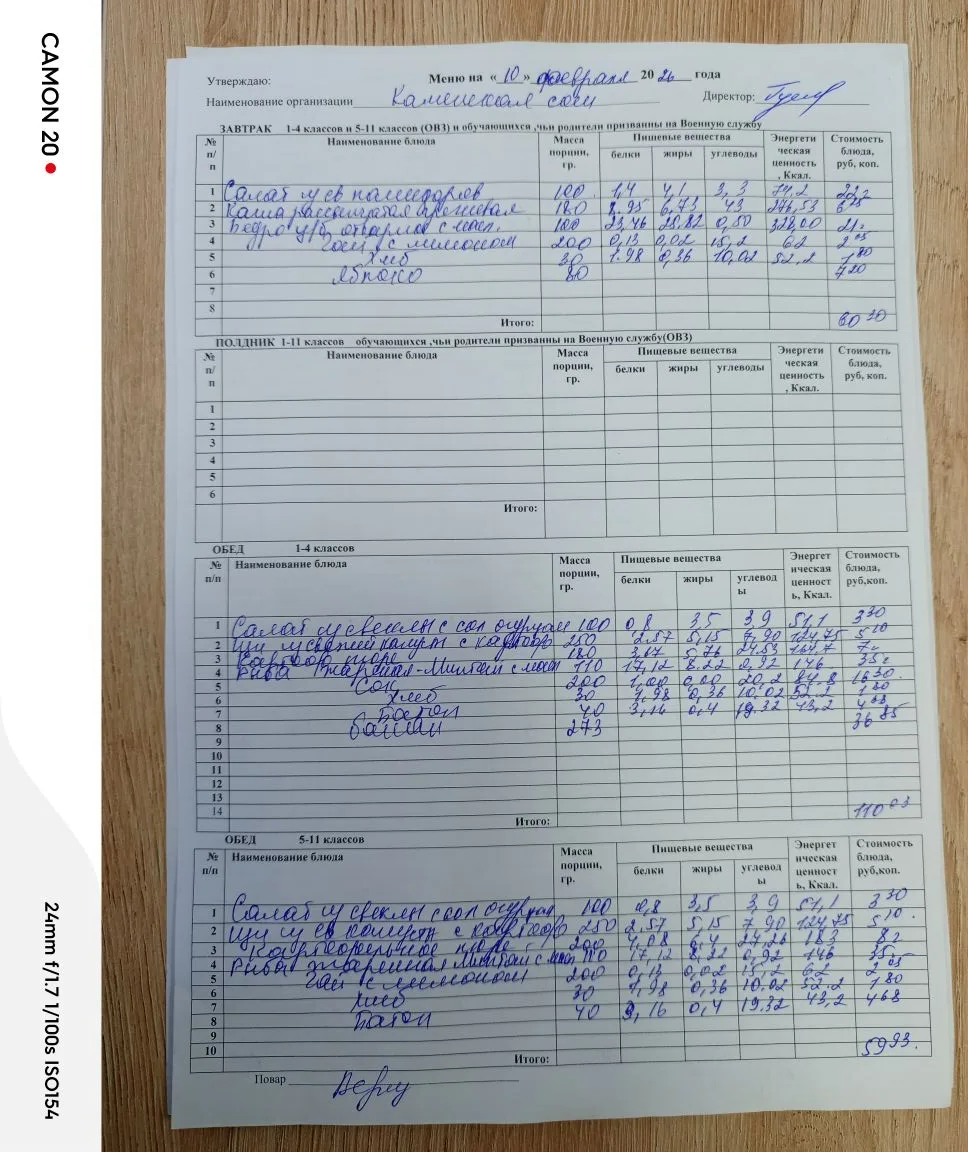 CAMON 20
24mm f/1.7 1/100s ISO154
Меню на « 10 » февраля 20 26 года
Утверждаю:
Наименование организации Каменская сош Директор:
ЗАВТРАК 1-4 классов и 5-11 классов (ОВЗ) и обучающихся ,чьи родители призванны на Военную службу
№ п/п Наименование блюда Масса порции, гр. Пищевые вещества Энергетическая ценность, Ккал. Стоимость блюда, руб, коп.
белки жиры углеводы
1 Салат из св помидоров 100 1,4 4,1 3,3 74,2
2 Каша рассыпчатая гречневая 180 8.95 6,73 43 276,53
3 Бедро отварное с масл. 100 23,46 25,82 0,50 328,00 21
4 Чай с лимоном 200 0,13 0,02 15,2 62 2 05
5 Хлеб 30 1.98 0,36 10,02 52,2 1 80
6 Яблоко 80 7 20
7
8
Итого: 60 30
ПОЛДНИК 1-11 классов обучающихся ,чьи родители призванны на Военную службу(ОВЗ)
№ п/п Наименование блюда Масса порции, гр. Пищевые вещества Энергетическая ценность, Ккал. Стоимость блюда, руб, коп.
белки жиры углеводы
1
2
3
4
5
6
Итого:
ОБЕД 1-4 классов
№ п/п Наименование блюда Масса порции, гр. Пищевые вещества Энергетическая ценность, Ккал. Стоимость блюда, руб,коп.
белки жиры углеводы
1 Салат из свеклы с сол огурцом 100 0,8 3,5 3,9 51,1 3 30
2 Щи из свежей капусты с картоф 250 2.57 5,15 7,90 124,75 5 10
3 Картоф пюре 180 3,67 5,76 24,53 164,7 7
4 Рыба жареная-Минтай с масл 110 17,12 8,22 0,92 146 35
5 Сок 200 1,00 0,00 20,2 84,8 16 30
6 Хлеб 30 1,98 0,36 10.02 52.2 1 80
7 Батон 40 3,16 0,4 19.32 43,2 4 68
8 банан 273 36 85
9
10
11
12
13
14
Итого: 110 03
ОБЕД 5-11 классов
№ п/п Наименование блюда Масса порции, гр. Пищевые вещества Энергетическая ценность, Ккал. Стоимость блюда, руб,коп.
белки жиры углеводы
1 Салат из свеклы с сол огурцом 100 0,8 3,5 3,9 51,1 3 30
2 Щи из св капусты с картоф 250 2.57 5,15 7,90 124,75 5 10
3 Картофельное пюре 200 4,08 6,4 27,26 183 8
4 Рыба жаренная Минтай с масл 110 17,12 8,22 0,92 146 35
5 Чай с лимоном 200 0,13 0,02 15,2 62 2 05
6 Хлеб 30 1,98 0,36 10.02 52.2 1 80
7 Батон 40 3,16 0,4 19,32 43,2 4 68
8
9
10
Итого: 59 93
Повар